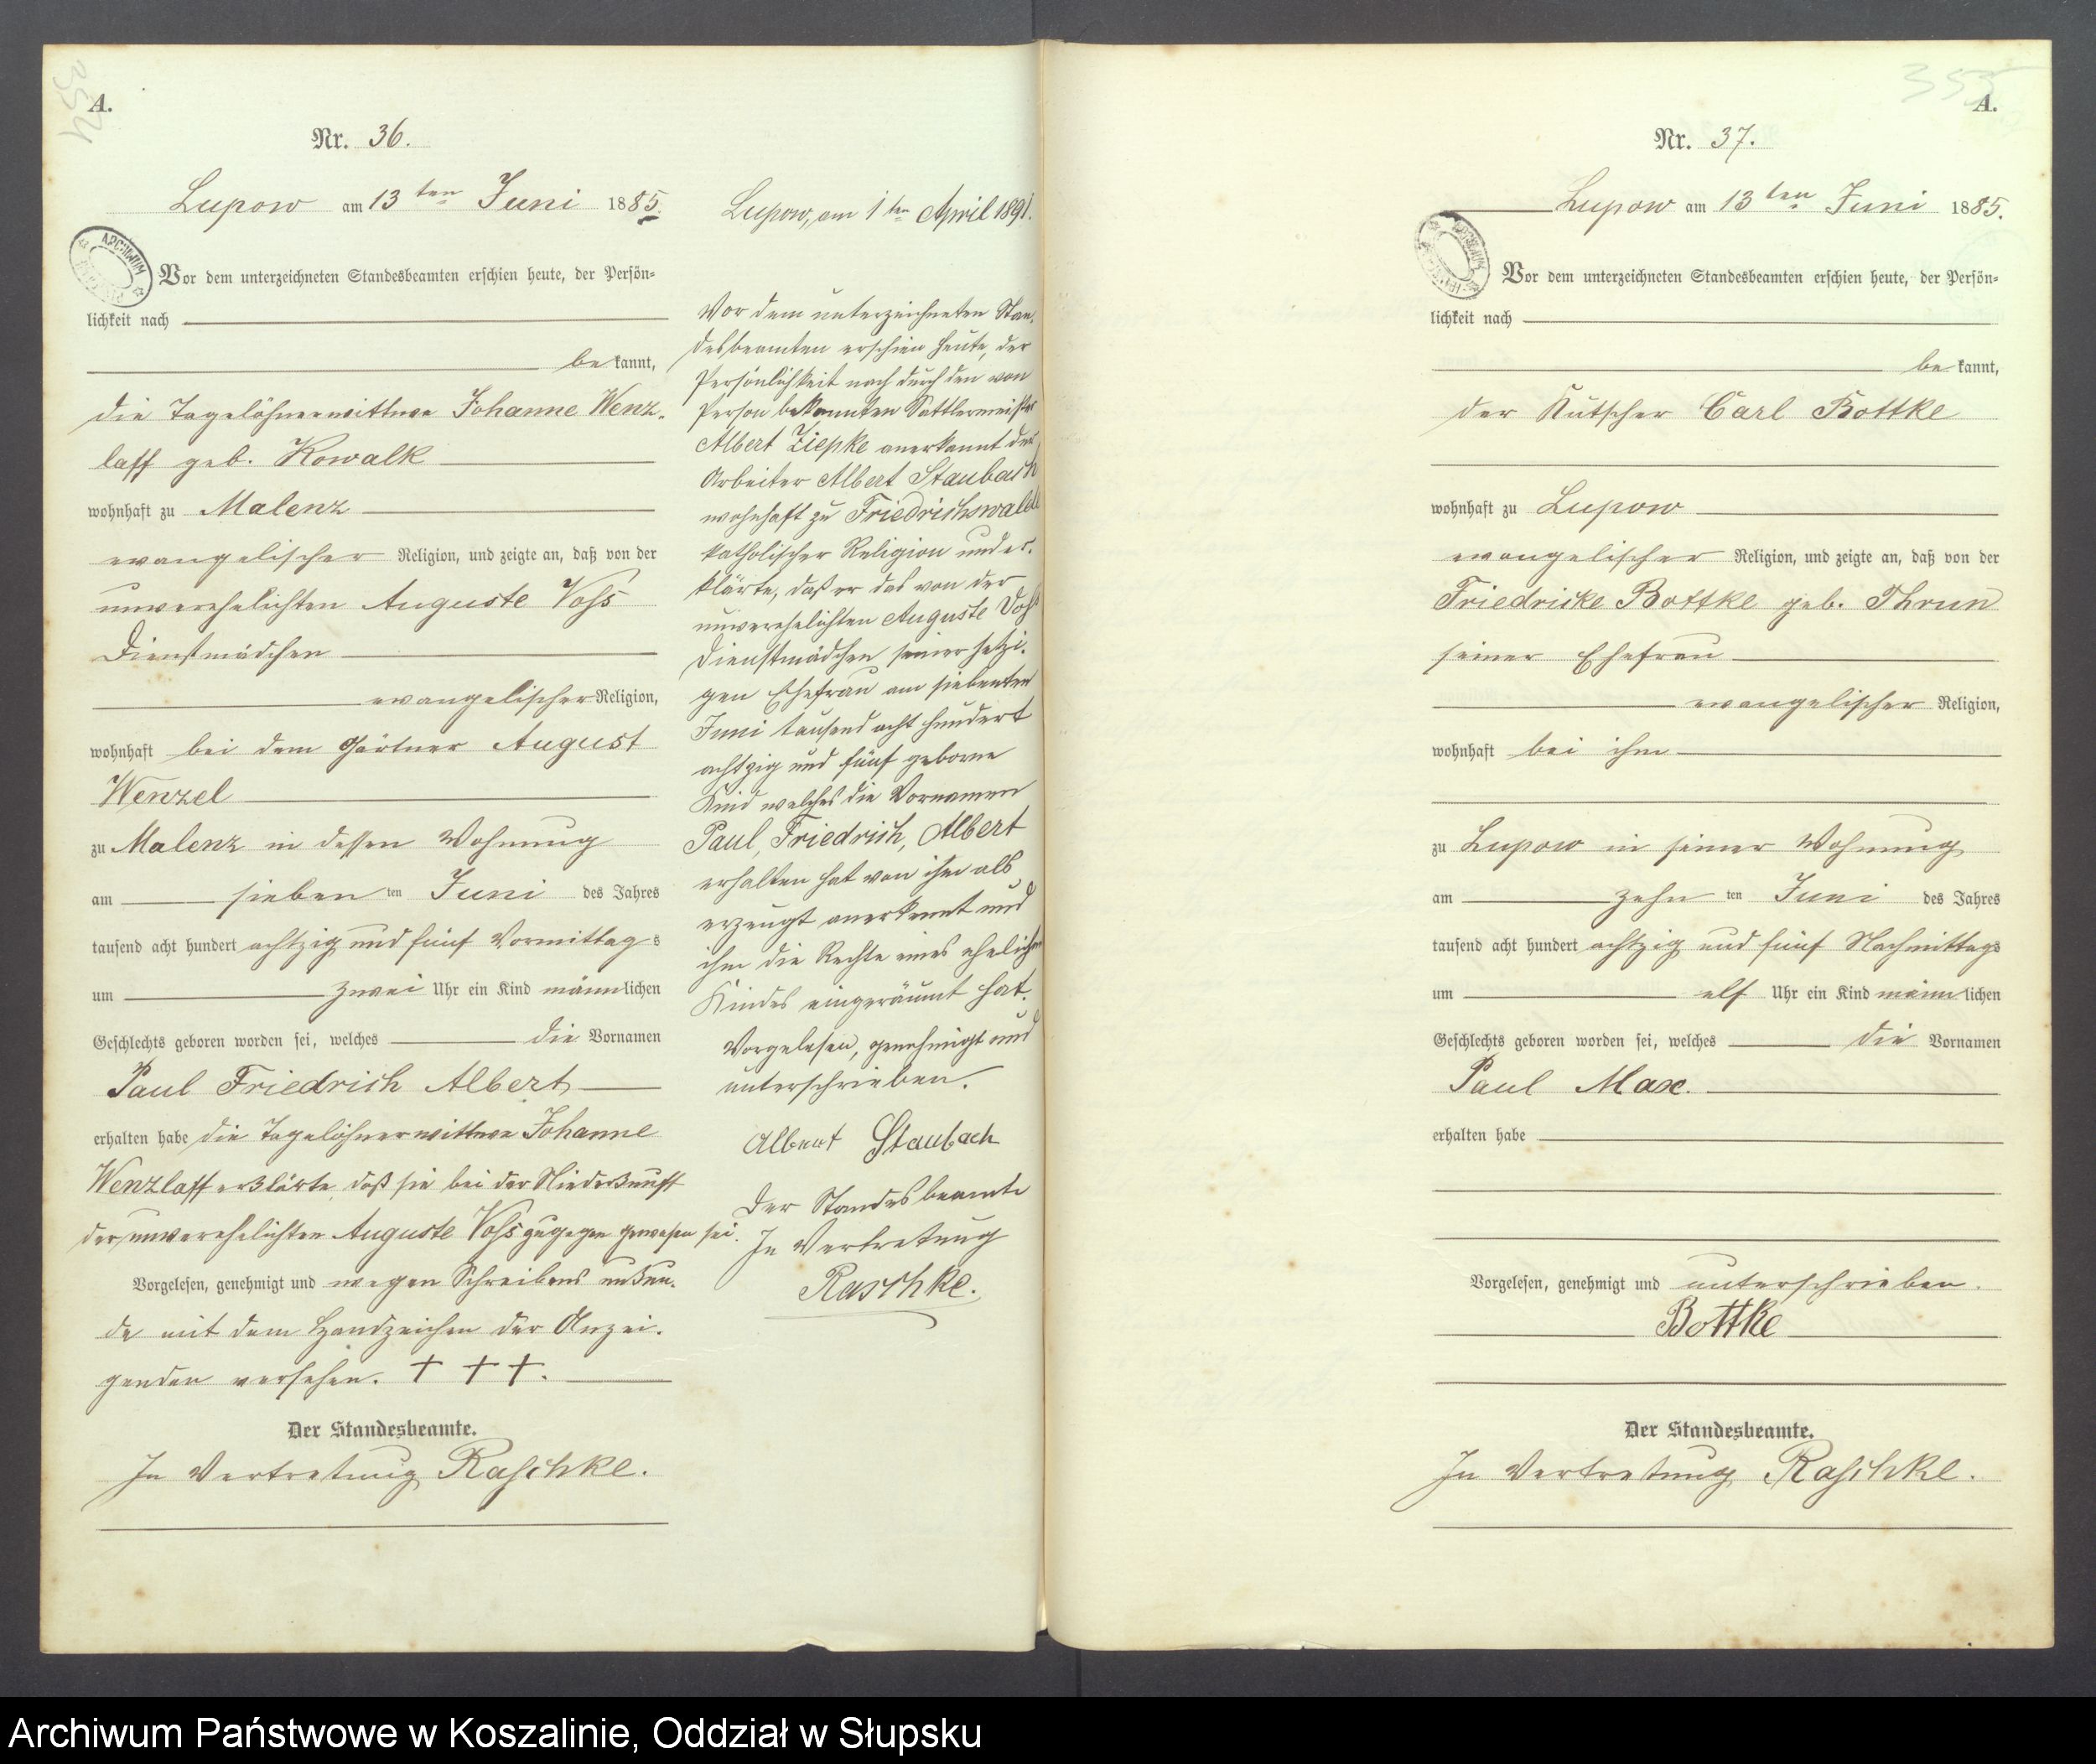 354
A.
Nr. 36.
Lupow am 13 ten Juni 1885.
ARCHIWUM
Vor dem unterzeichneten Standesbeamten erschien heute, der Persön=
lichkeit nach
be kannt,
die Tagelöhnerwittwe Johanne Wenz-
laff geb. Kowalk
wohnhaft zu Malenz
evangelischer Religion, und zeigte an, daß von der
unverehelichten Auguste Voß
Dienstmädchen
evangelischer Religion,
wohnhaft bei dem Gärtner August
Wenzel
zu Malenz in dessen Wohnung
am sieben ten Juni des Jahres
tausend acht hundert achtzig und fünf Vormittags
um zwei Uhr ein Kind männlichen
Geschlechts geboren worden sei, welches die Vornamen
Paul Friedrich Albert
erhalten habe die Tagelöhnerwittwe Johanne
Wenzlaff erklärte, daß sie bei der Niederkunft
der unverehelichten Auguste Voß zugegen gewesen sei.
Vorgelesen, genehmigt und wegen Schreibens unkun-
de mit dem Handzeichen der Anzei-
genden versehen. + + +.
Der Standesbeamte.
In Vertretung Raschke.
Lupow, am 1 ten April 1891.
Vor dem unterzeichneten Stan-
desbeamten erschien heute, der
Persönlichkeit nach durch den von
Person bekannten Sattlermeister
Albert Ziepke anerkannt der
Arbeiter Albert Staubach
wohnhaft zu Friedrichswalde
katholischer Religion und er-
klärte, daß er das von der
unverehelichten Auguste Voß
Dienstmädchen seiner jetzi-
gen Ehefrau am siebenten
Juni tausend acht hundert
achtzig und fünf geborne
Kind welches die Vornamen
Paul, Friedrich, Albert
erhalten hat von ihm als
erzeugt anerkennt und
ihm die Rechte eines ehelichen
Kindes eingeräumt hat.
Vorgelesen, genehmigt und
unterschrieben.
Albert Staubach
Der Standesbeamte
In Vertretung
Raschke.
355
A.
Nr. 37.
Lupow am 13 ten Juni 1885.
Vor dem unterzeichneten Standesbeamten erschien heute, der Persön=
lichkeit nach
be kannt,
der Kutscher Carl Bottke
wohnhaft zu Lupow
evangelischer Religion, und zeigte an, daß von der
Friedricke Bottke geb. Thrun
seiner Ehefrau
evangelischer Religion,
wohnhaft bei ihm
zu Lupow in seiner Wohnung
am zehn ten Juni des Jahres
tausend acht hundert achtzig und fünf Nachmittags
um elf Uhr ein Kind männlichen
Geschlechts geboren worden sei, welches die Vornamen
Paul Max.
erhalten habe
Vorgelesen, genehmigt und unterschrieben.
Bottke
Der Standesbeamte.
In Vertretung Raschke.
Archiwum Państwowe w Koszalinie, Oddział w Słupsku